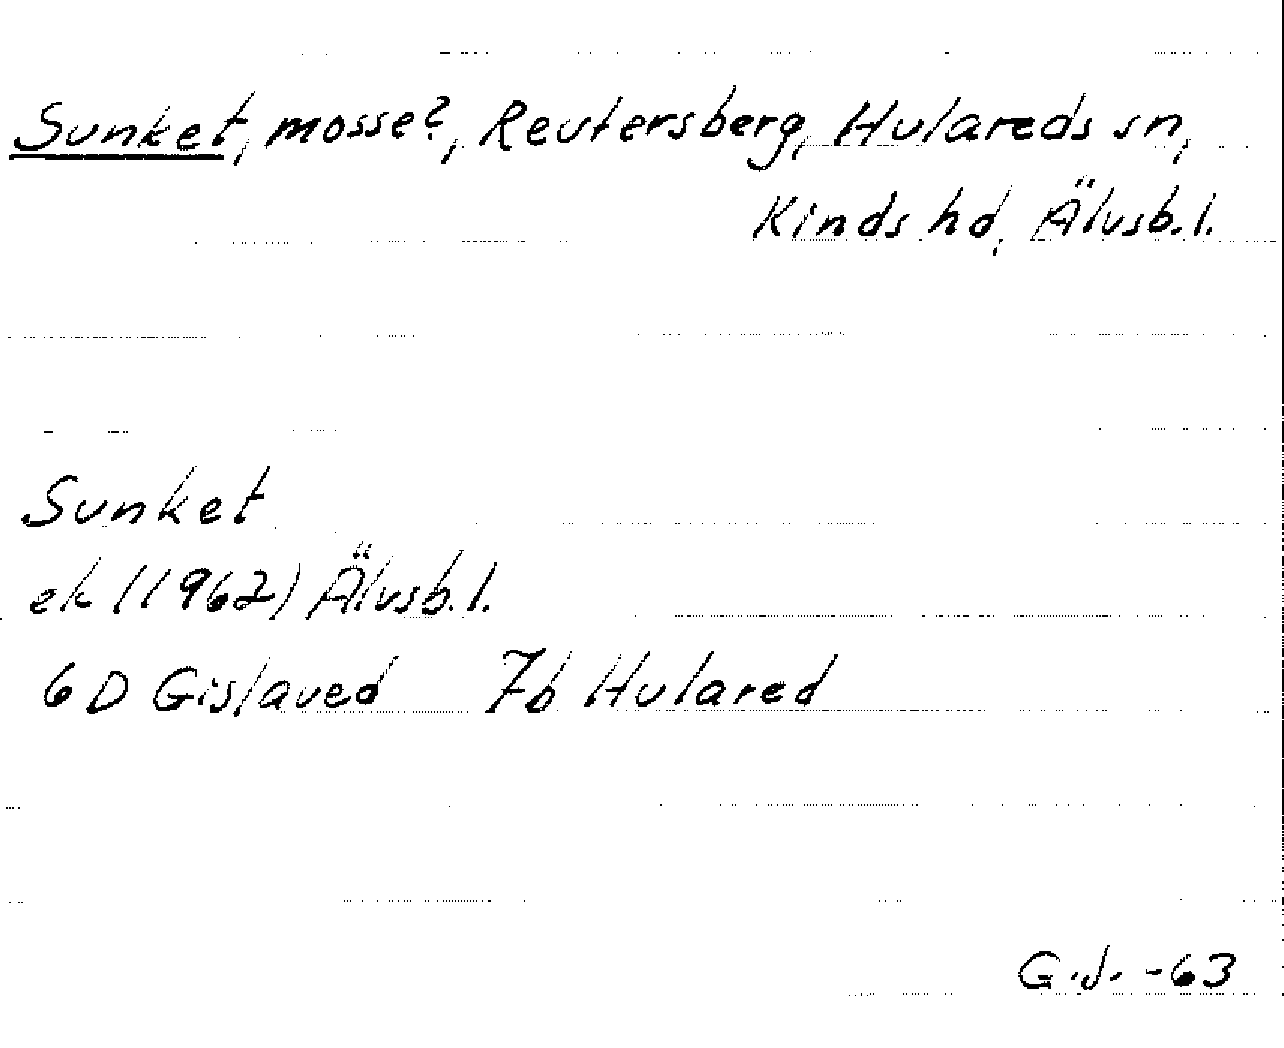 Sunket, mosse?, Reutersberg, Hulareds sn,
Kinds hd, Älvsb. l.
Sunket
ek (1962) Älvsb. l.
6D Gislaved 7b Hulared
G.J. -63